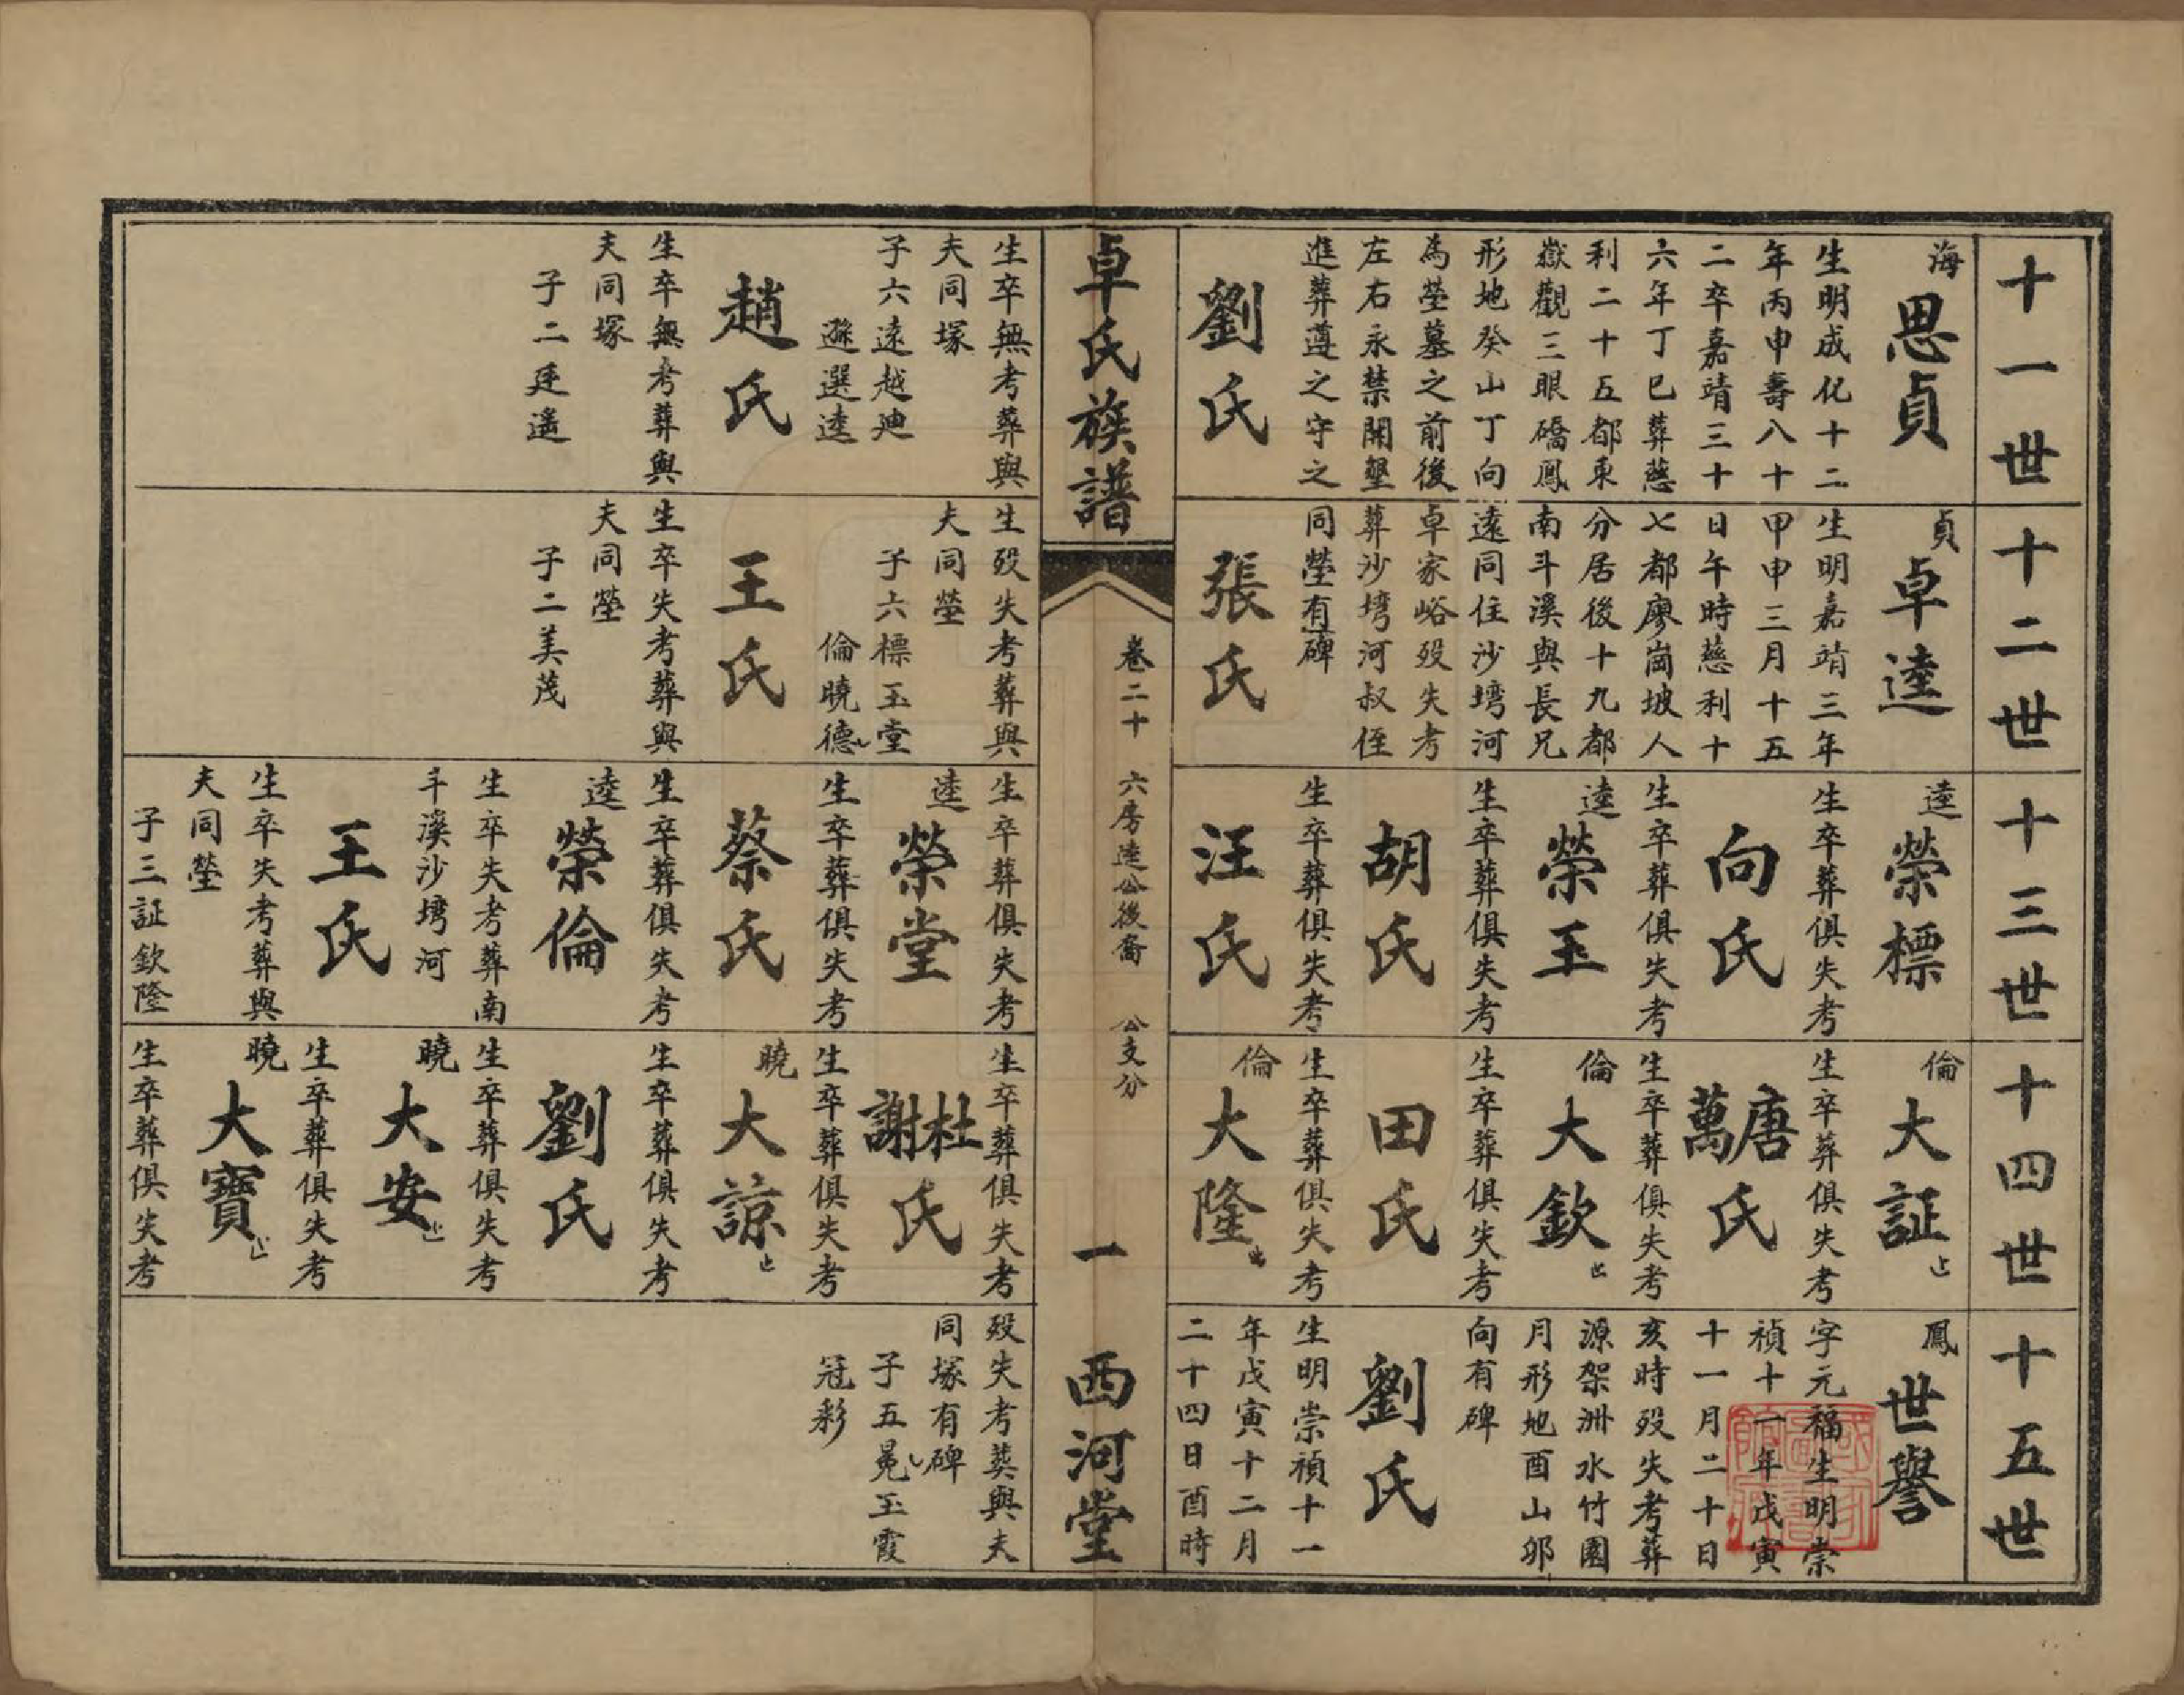 十一世
海
思貞
生明成化十二
年丙申壽八十
二卒嘉靖三十
六年丁巳葬慈
利二十五都東
嶽觀三眼磽鳳
形地癸山丁向
為塋墓之前後
左右永禁開墾
進葬遵之守之
劉氏
生卒無考葬與
夫同塚
子六遠越廸
遜選逵
趙氏
生卒無考葬與
夫同塚
子二廷遙
十二世
貞
卓逵
生明嘉靖三年
甲申三月十五
日午時慈利十
七都廖崗坡人
分居後十九都
南斗溪與長兄
遠同住沙塆河
卓家峪歿失考
葬沙塆河叔侄
同塋有碑
張氏
生歿失考葬與
夫同塋
子六標玉堂
倫曉德
王氏
生卒失考葬與
夫同塋
子二美茂
十三世
逵
榮標
生卒葬俱失考
向氏
生卒葬俱失考
逵
榮玉
生卒葬俱失考
胡氏
生卒葬俱失考
汪氏
生卒葬俱失考
逵
榮堂
生卒葬俱失考
蔡氏
生卒葬俱失考
逵
榮倫
生卒失考葬南
斗溪沙塆河
王氏
生卒失考葬與
夫同塋
子三証欽隆
十四世
倫
大証 止
生卒葬俱失考
唐萬氏
生卒葬俱失考
倫
大欽 止
生卒葬俱失考
田氏
生卒葬俱失考
倫
大隆 止
生卒葬俱失考
杜謝氏
生卒葬俱失考
曉
大諒 止
生卒葬俱失考
劉氏
生卒葬俱失考
曉
大安 止
生卒葬俱失考
曉
大寶 止
生卒葬俱失考
十五世
鳳
世譽
字元福生明崇
禎十一年戊寅
十一月二十日
亥時歿失考葬
源架洲水竹園
月形地酉山卯
向有碑
劉氏
生明崇禎十一
年戊寅十二月
二十四日酉時
歿失考葬與夫
同塚有碑
子五冕玉霞
冠彩
卓氏族譜
卷二十 六房逵公後裔 公支分
一
西河堂